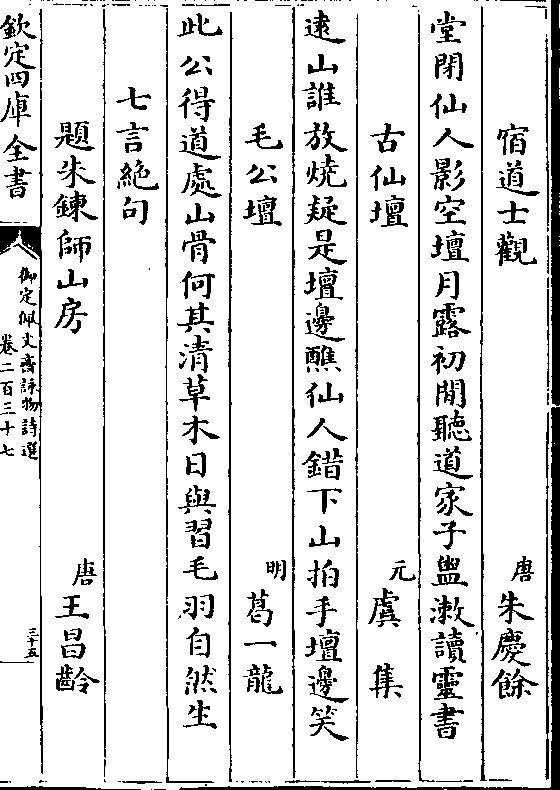 宿道士觀 唐 朱慶餘
堂閉仙人影空壇月露初閒聽道家子盥漱讀靈書
古仙壇 元 虞集
逺山誰放燒疑是壇邊醮仙人錯下山拍手壇邊笑
毛公壇 明 葛一龍
此公得道處山骨何其清草木日與習毛羽自然生
七言絶句
題朱鍊師山房 唐 王昌齡
欽定四庫全書
御定佩文齋詠物詩選
卷二百三十七
三十五